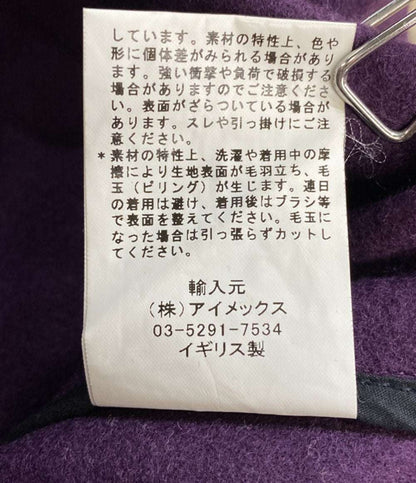 しています。素材の特性上、色や
形に個体差がみられる場合があり
ます。強い衝撃や負荷で破損する
場合がありますのでご注意くださ
い。表面がざらついている場合が
あります。スレや引っ掛けにご注
意ください。
* 素材の特性上、洗濯や着用中の摩
擦により生地表面が毛羽立ち、毛
玉(ピリング)が生じます。連日
の着用は避け、着用後はブラシ等
で表面を整えてください。毛玉に
なった場合は引っ張らずカットし
てください。
輸入元
(株)アイメックス
03-5291-7534
イギリス製